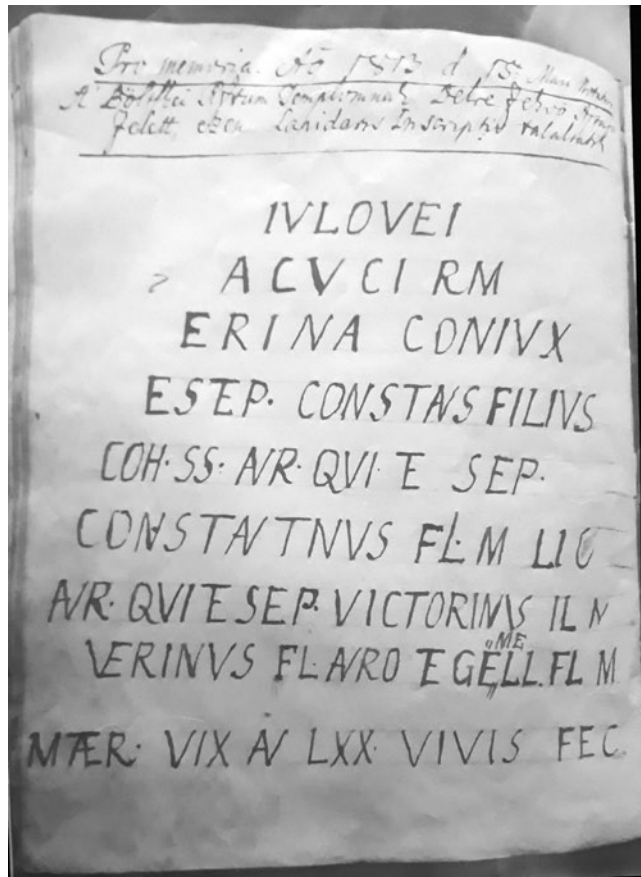 Pro memoria. Aõ 1813 d. 15
A Bölkei Templomnak Delre
felett, eben Lapidaris Inscriptio találtatik
IVLOVEI
ACVCI RM
ERINA CONIVX
ESEP. CONSTANS FILIVS
COH. SS. AVR. QVI E SEP.
CONSTANTNVS FL. M LIC
AVR. QVI E SEP. VICTORINVS IL N
VERINVS FL. AVRO E GELL. FL M
ME
MAER. VIX AN LXX. VIVIS FEC